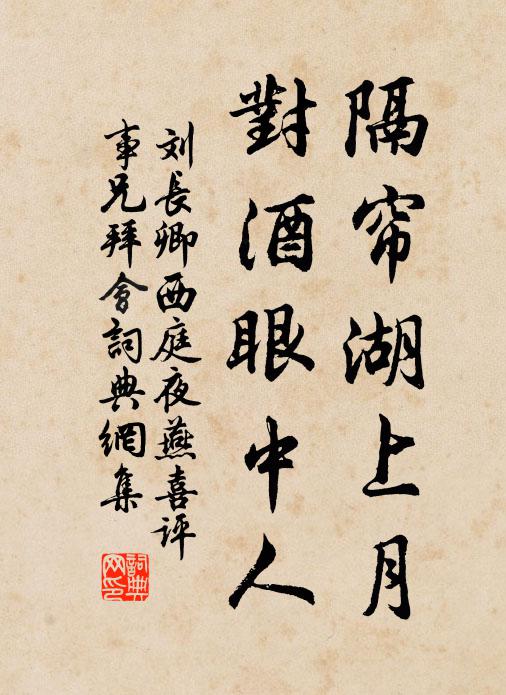 隔帘湖上月
對酒眼中人
刘長卿西庭夜燕喜评
事兄拜會詞典網集
詞典
网印